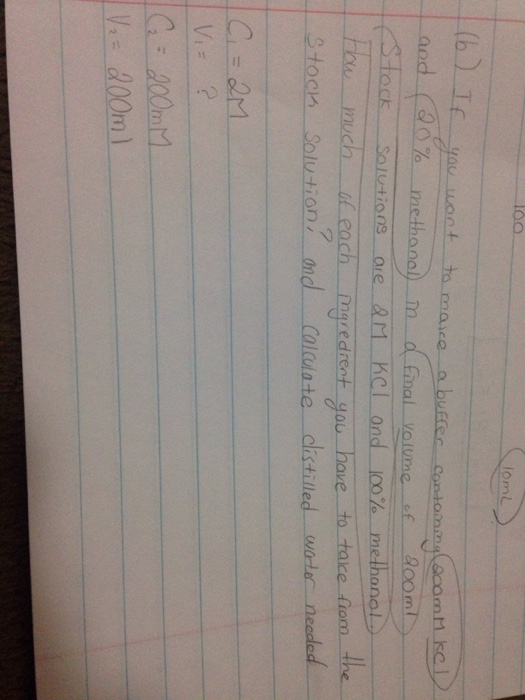 100
10mL
(b) If you want to make a buffer containing 200mM KCl
and 20% methanol in a final volume of 200ml
(Stock solutions are 2M KCl and 100% methanol.)
How much of each ingredient you have to take from the
stock solution? and calculate distilled water needed
C1 = 2M
V1 = ?
C2 = 200mM
V2 = 200ml